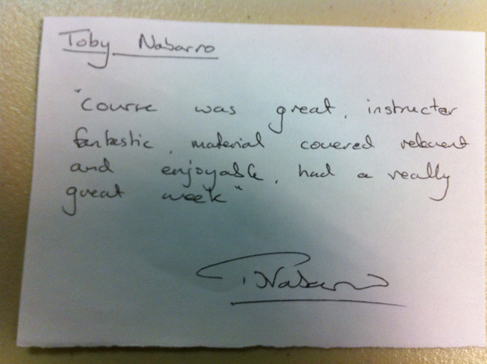 Toby Nabarro
"Course was great, instructor
fantastic, material covered relevant
and enjoyable, had a really
great week"
T. Nabarro